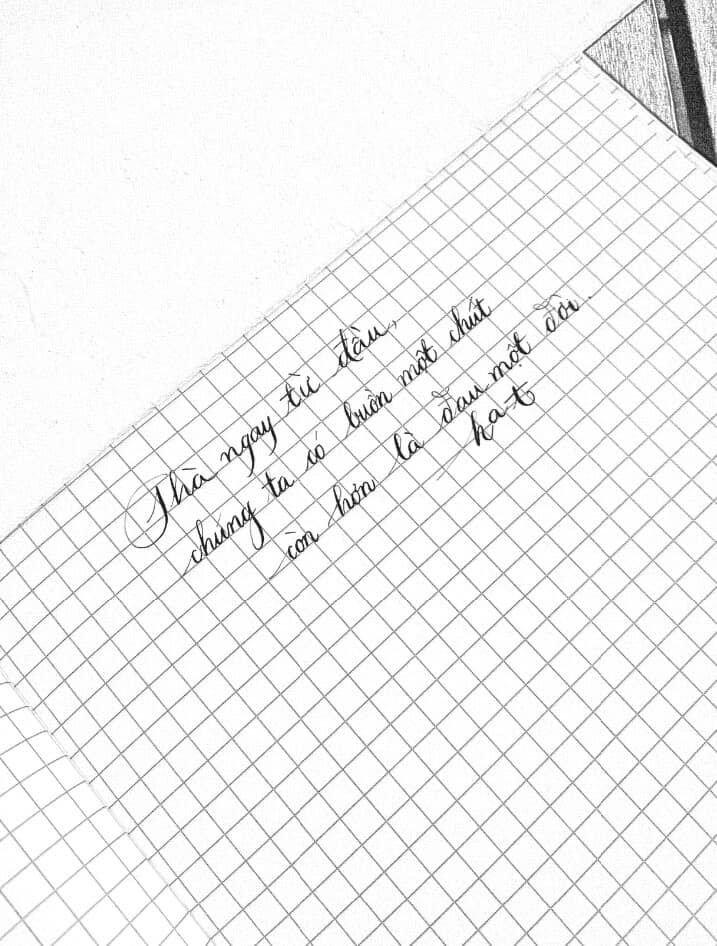 Thà ngay từ đầu,
chúng ta có buồn một chút
còn hơn là đau một đời.
ka-t